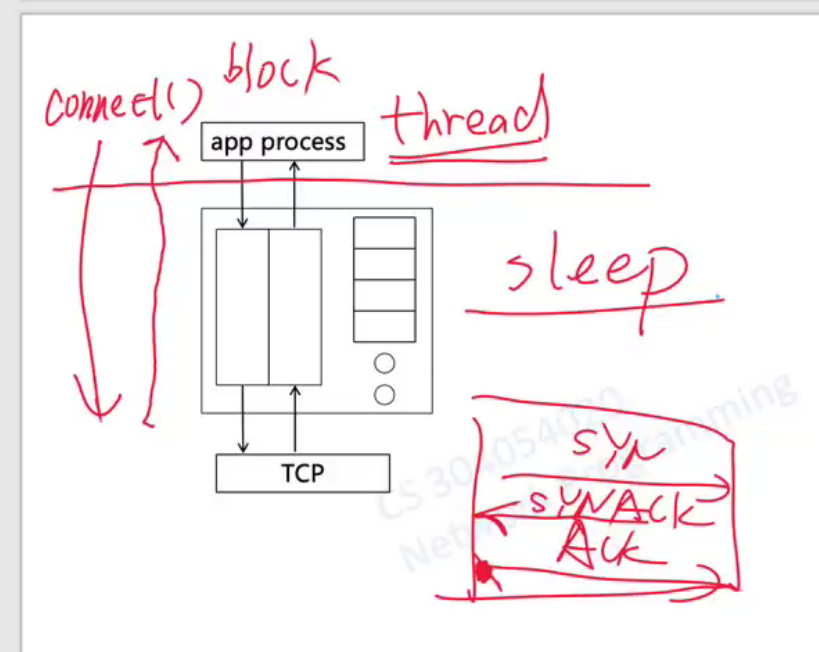 connect() block
app process thread
sleep
TCP
SYN
SYNACK
ACK
CS 304054020
Network Programming